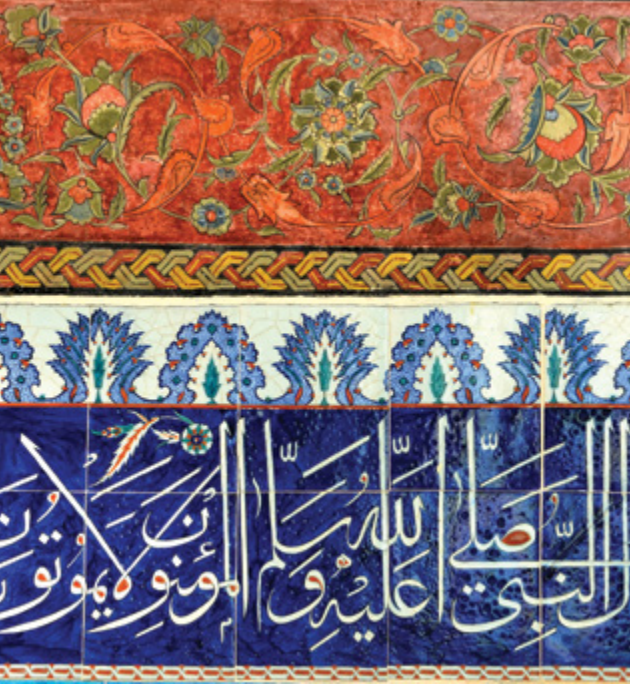 قال النبي صلى الله عليه وسلم المؤمنون لا يموتون